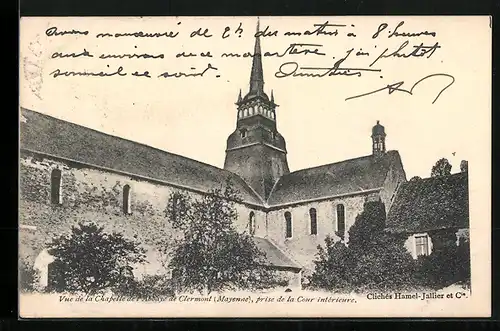 avons manœuvré de 2h des matin à 8 heures
aux environs de ce monastère j'ai plutôt
sommeil ce soir. Amitiés
Vue de la Chapelle de l'Abbaye de Clermont (Mayenne), prise de la Cour intérieure.
Clichés Hamel-Jallier et Cie